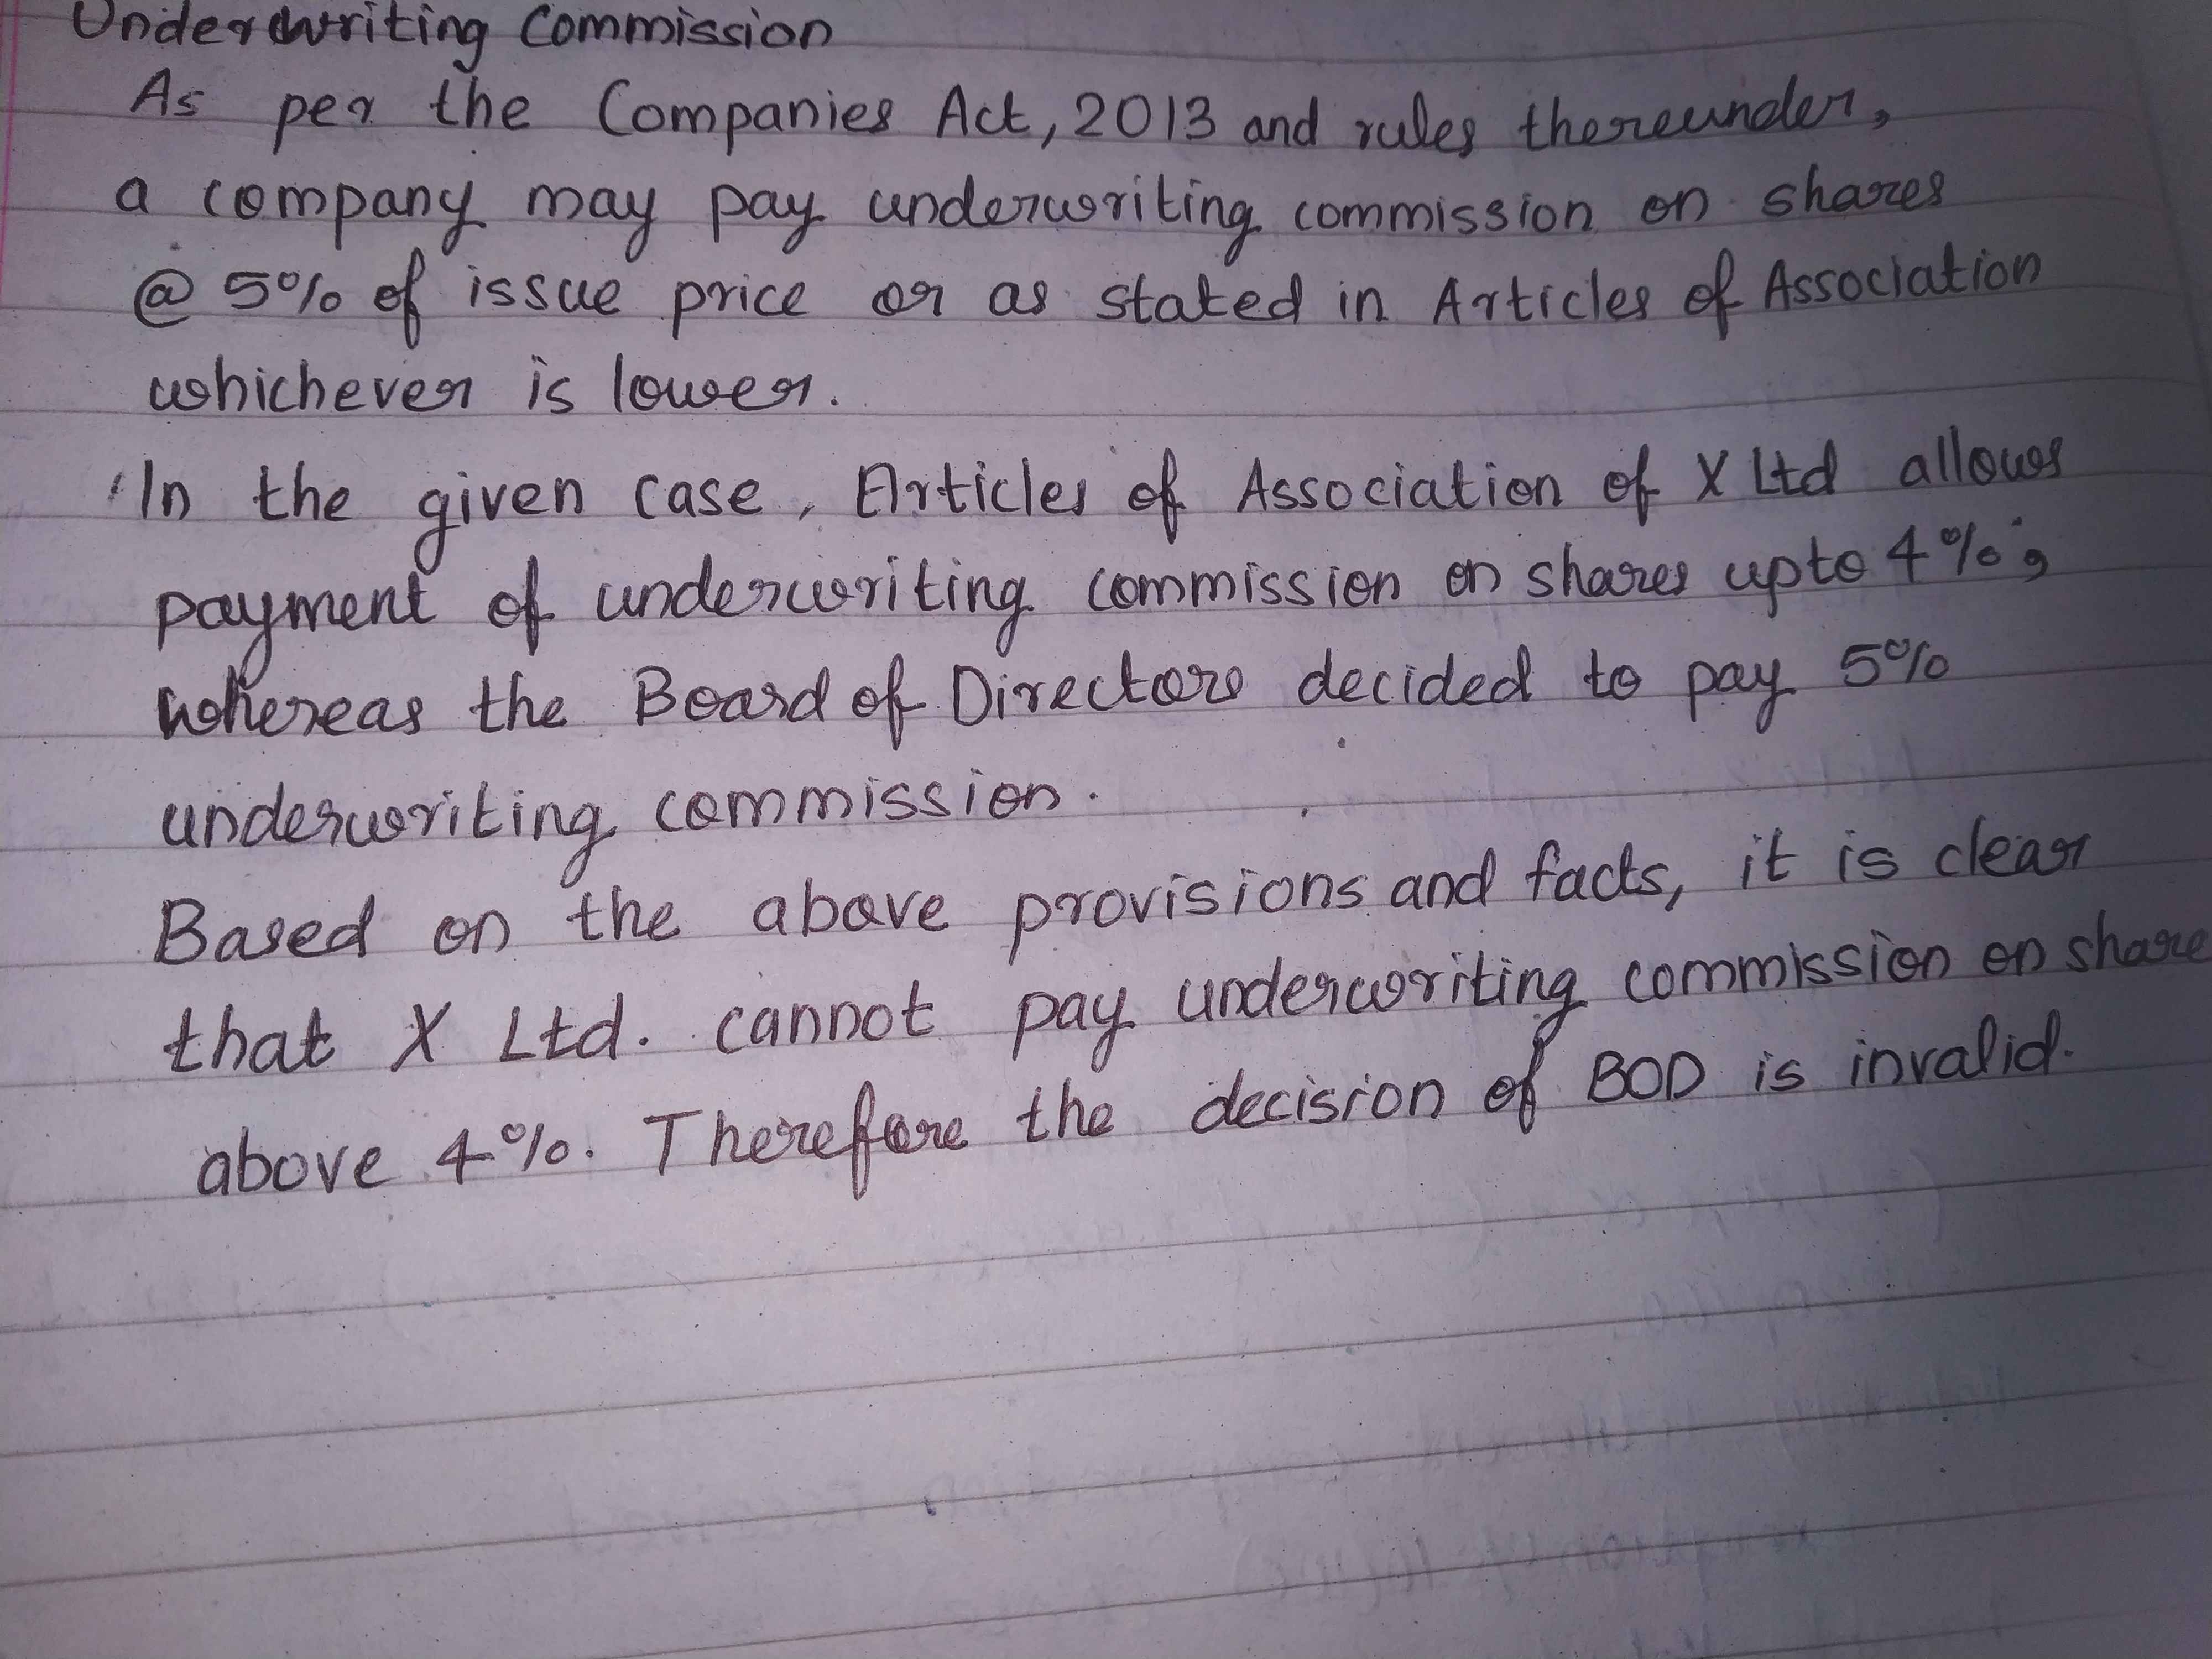 Underwriting Commission
As per the Companies Act, 2013 and rules thereunder,
a company may pay underwriting commission on shares
@ 5% of issue price or as stated in Articles of Association
whichever is lower.
In the given case, Articles of Association of X Ltd allows
payment of underwriting commission on shares upto 4%,
whereas the Board of Directors decided to pay 5%
underwriting commission.
Based on the above provisions and facts, it is clear
that X Ltd. cannot pay underwriting commission on share
above 4%. Therefore the decision of BOD is invalid.